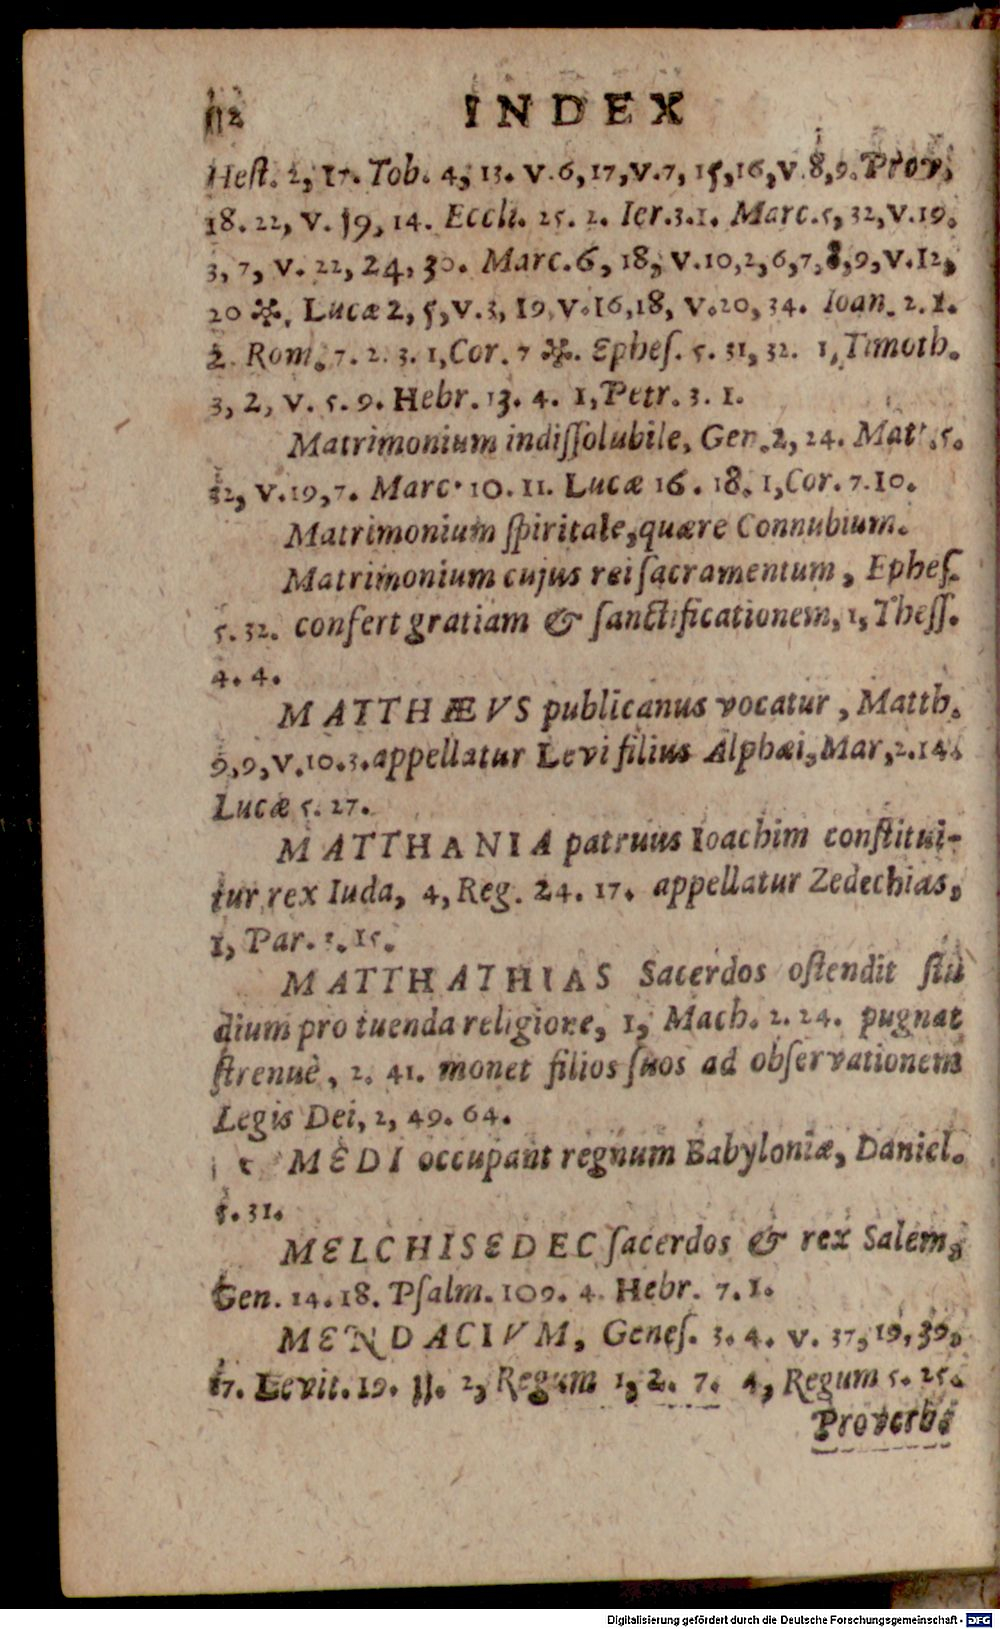 112 INDEX
Hest. 2, 17. Tob. 4, 13. v. 6, 17, v. 7, 15, 16, v. 8, 9. Prov,
18. 22, v. 19, 14. Eccli. 25. 2. Ier. 3. 1. Marc. 5, 32, v. 19.
3, 7, v. 22, 24, 30. Marc. 6, 18, v. 10, 2, 6, 7, 8, 9, v. 12,
20 ✲. Lucæ 2, 5, v. 3, 19, v. 16, 18, v. 20, 34. Ioan. 2. 1.
2. Rom. 7. 2. 3. 1, Cor. 7 ✲. Ephes. 5. 31, 32. 1, Timoth.
3, 2, v. 5. 9. Hebr. 13. 4. 1, Petr. 3. 1.
Matrimonium indiſſolubile, Gen. 2, 24. Matt. 5.
32, v. 19, 7. Marc. 10. 11. Lucæ 16. 18. 1, Cor. 7. 10.
Matrimonium ſpiritale, quære Connubium.
Matrimonium cujus rei ſacramentum, Epheſ.
5. 32. confert gratiam & ſanctificationem, 1, Theſſ.
4. 4.
MATTHÆVS publicanus vocatur, Matth.
9, 9, v. 10. 3. appellatur Levi filius Alphæi, Mar, 2. 14.
Lucæ 5. 27.
MATTHANIA patruus Ioachim conſtitui-
tur rex Iuda, 4, Reg. 24. 17. appellatur Zedechias,
1, Par. 3. 15.
MATTHATHIAS Sacerdos oſtendit ſtu
dium pro tuenda religione, 1, Mach. 2. 24. pugnat
ſtrenuè, 2. 41. monet filios ſuos ad obſervationem
Legis Dei, 2, 49. 64.
MEDI occupant regnum Babyloniæ, Daniel.
5. 31.
MELCHISEDEC ſacerdos & rex Salem,
Gen. 14. 18. Pſalm. 109. 4. Hebr. 7. 1.
MENDACIVM, Geneſ. 3. 4. v. 37, 19, 39,
17. Levit. 19. 11. 2, Regum 1, 2. 7. 4, Regum 5. 25.
Proverb
Digitalisierung gefördert durch die Deutsche Forschungsgemeinschaft - DFG